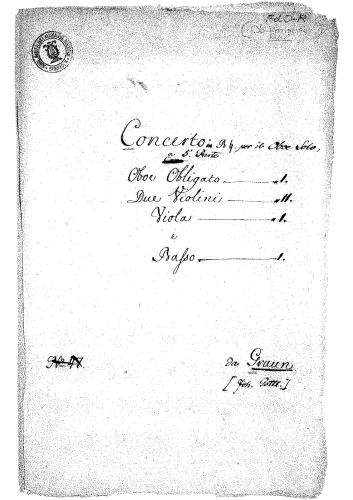 FdO-R
Concerto in B ♮, per il Oboe Solo,
a 5. Parti
Oboe Obligato 1.
Due Violini 11.
Viola 1.
e
Basso 1.
No 47.
da Graun
[Joh. Gottl.]